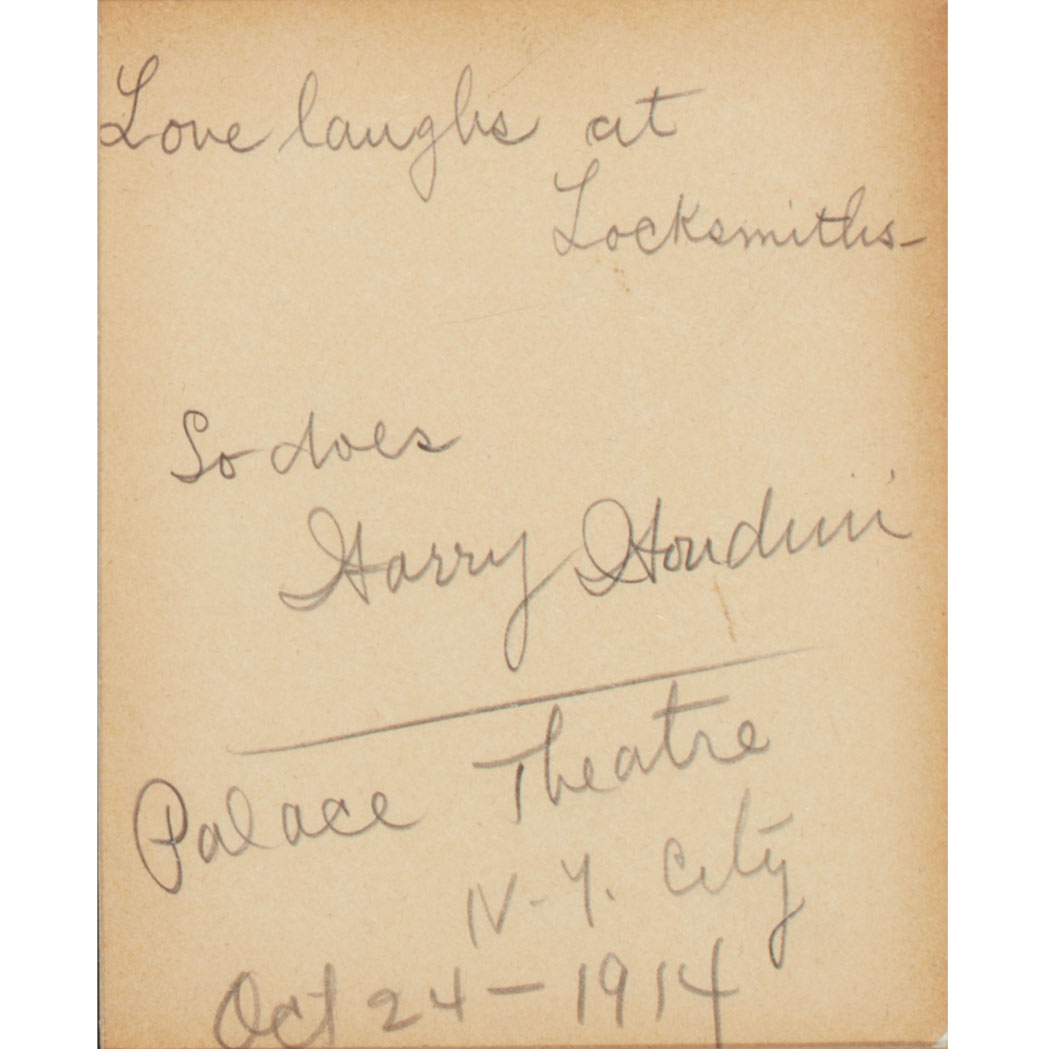 Love laughs at
Locksmiths-
So does
Harry Houdini
Palace Theatre
N-Y. City
Oct 24-1914